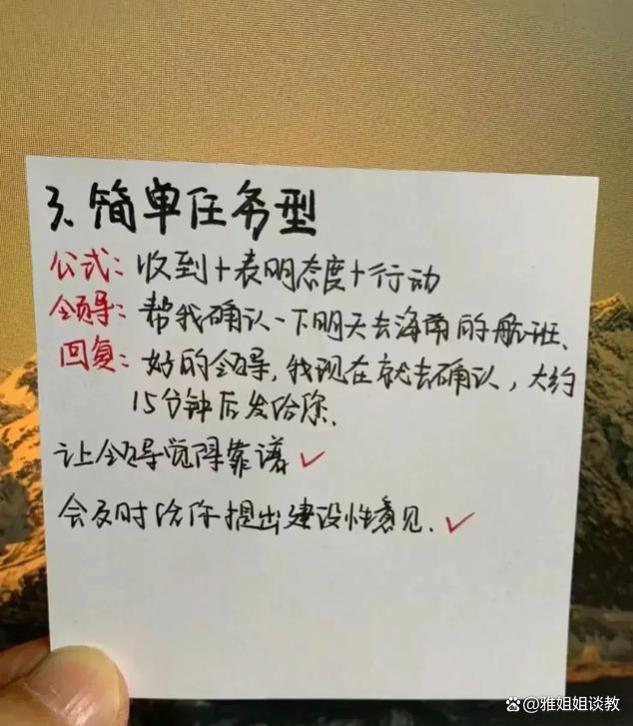 3、简单任务型
公式：收到+表明态度+行动
领导：帮我确认一下明天去海南的航班、
回复：好的领导，我现在就去确认，大约
15分钟后发给你.
让领导觉得靠谱✓
会及时给你提出建设性意见.✓
@雅姐姐谈教